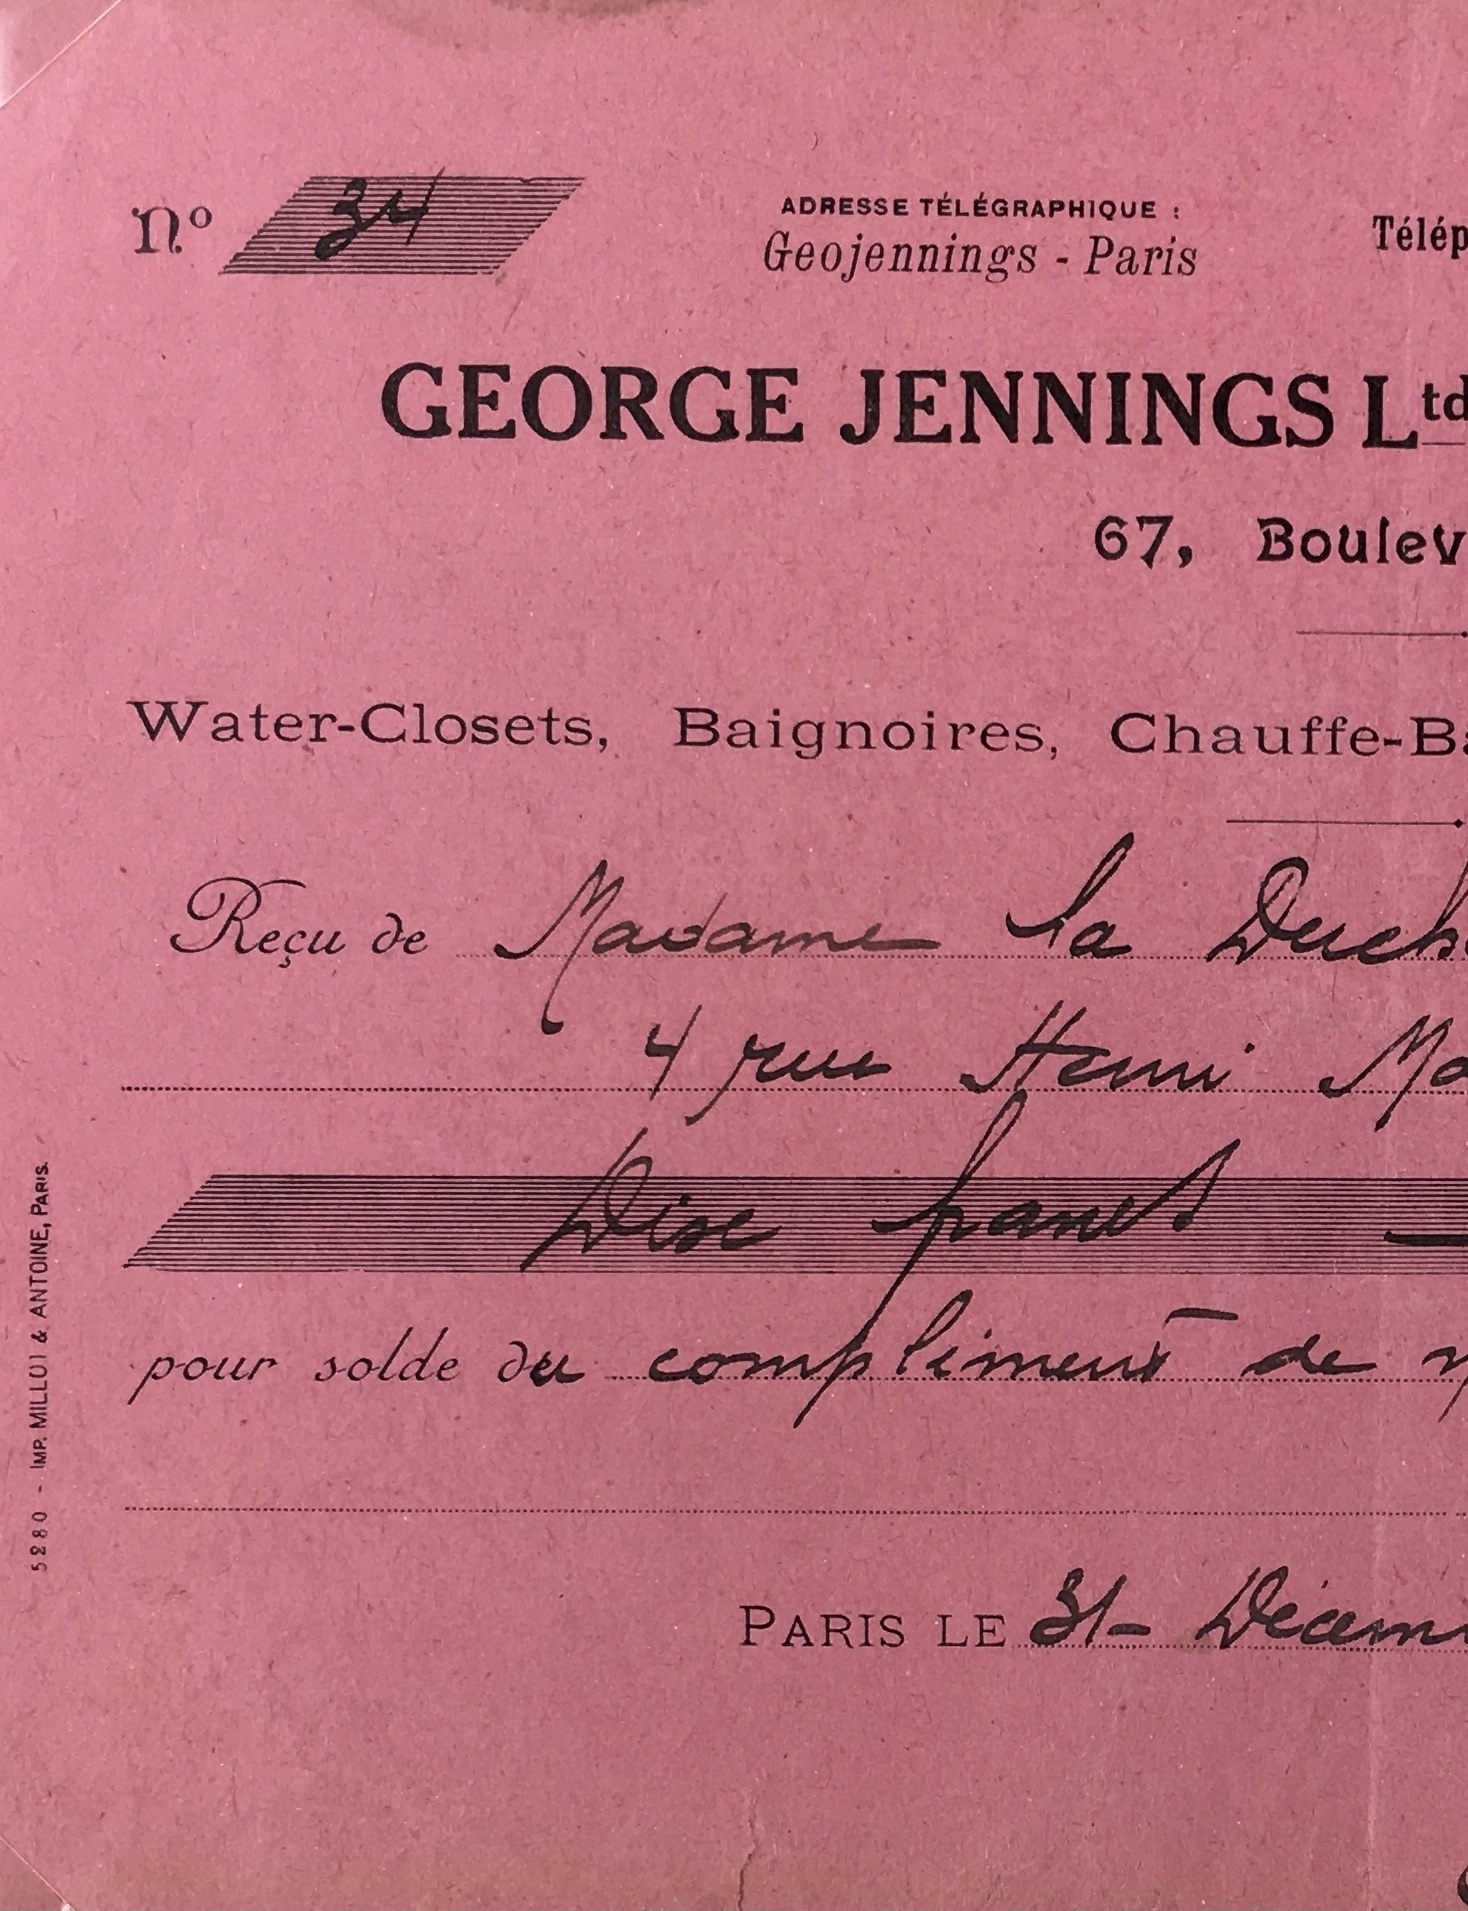 Nº 34
ADRESSE TÉLÉGRAPHIQUE :
Geojennings - Paris
Télép
GEORGE JENNINGS Ltd
67, Boulev
Water-Closets, Baignoires, Chauffe-Ba
Reçu de Madame la Duch
4 rue Henri Mo
Dix francs
pour solde du compliment de
PARIS LE 31- Décem
5280 - IMP. MILLOT & ANTOINE, PARIS.